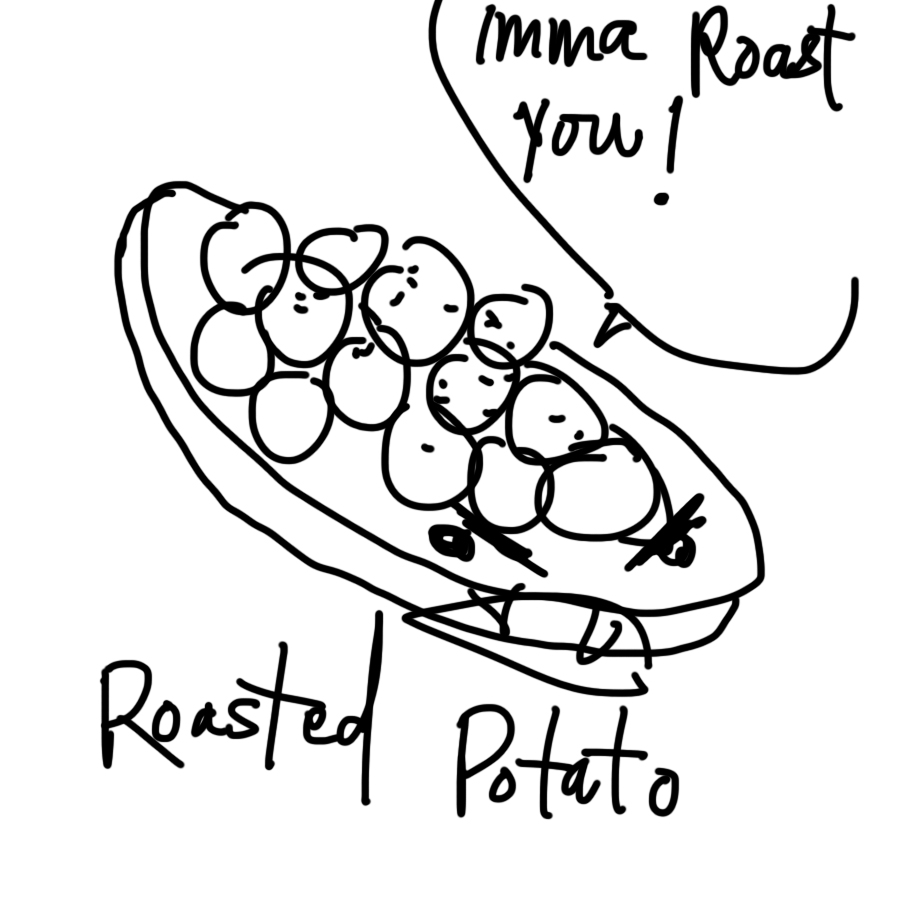 imma Roast
you!
Roasted Potato